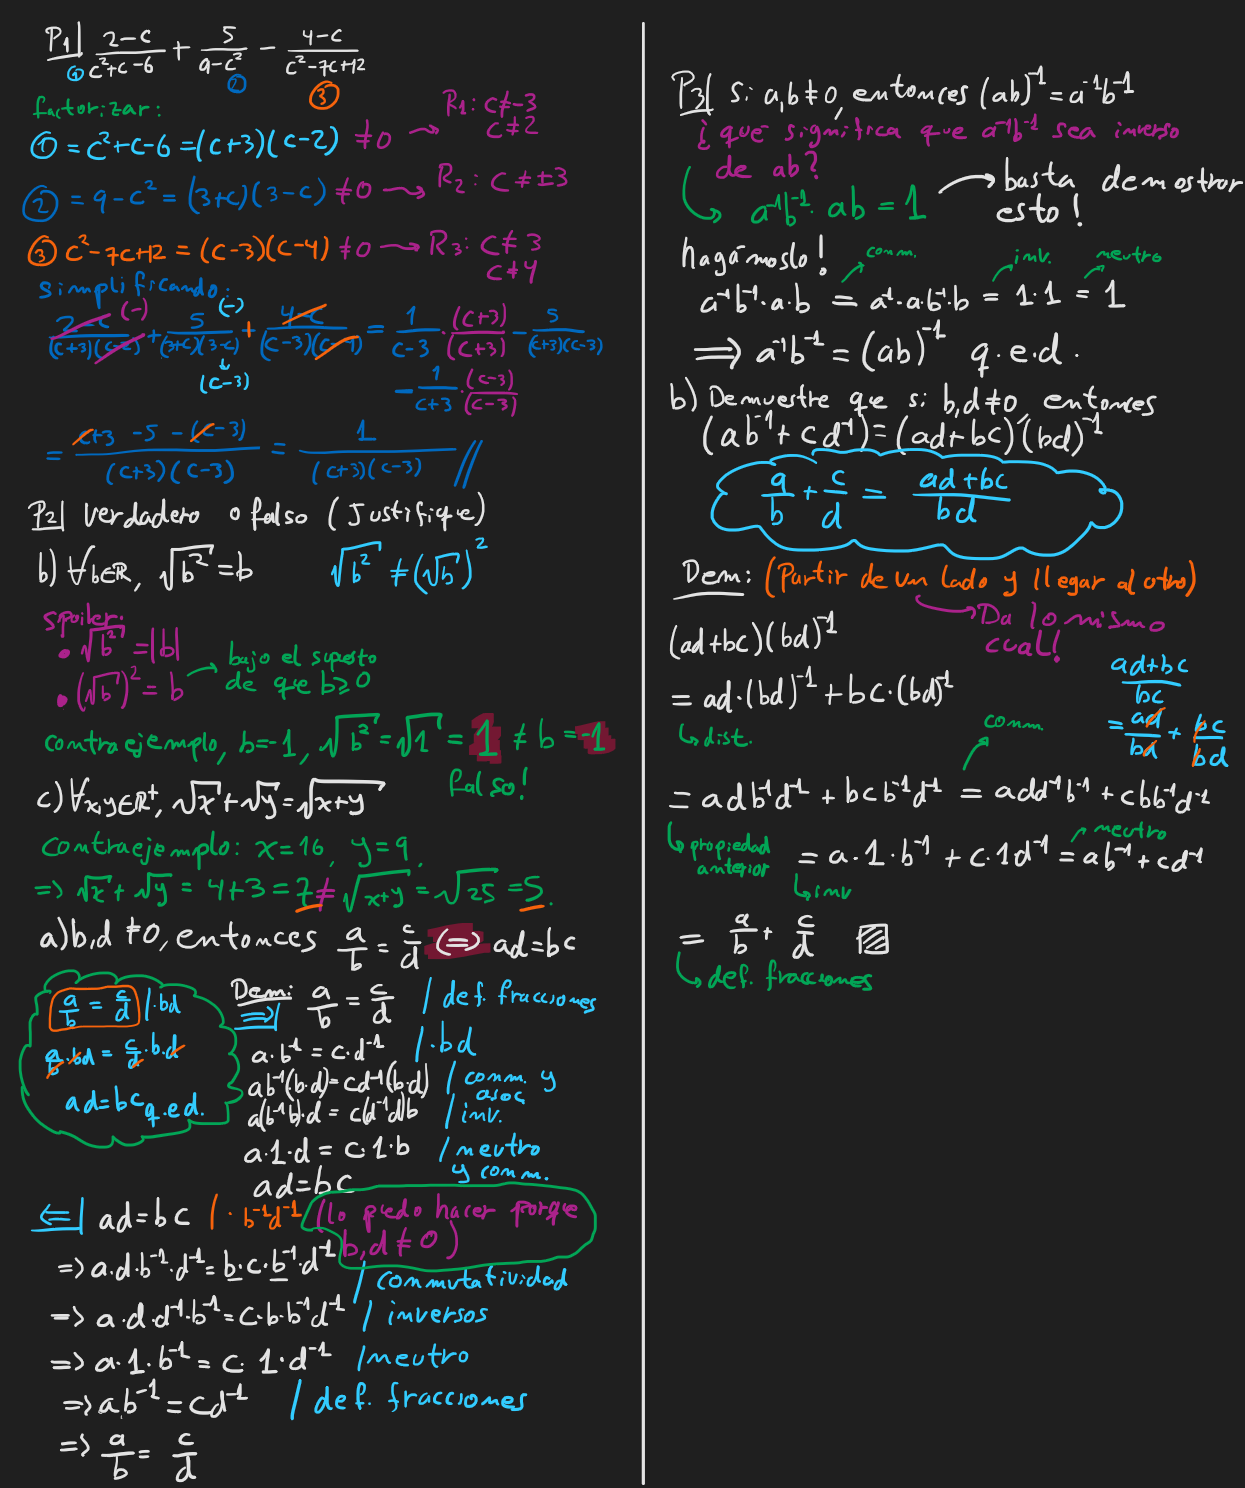 P1| (2-c)/(c²+c-6) + 5/(9-c²) - (4-c)/(c²-7c+12)
① ② ③
factorizar:
① = c²+c-6 = (c+3)(c-2) ≠0 → R₁: c≠-3
c≠2
② = 9-c² = (3+c)(3-c) ≠0 → R₂: c≠±3
③ c²-7c+12 = (c-3)(c-4) ≠0 → R₃: c≠3
c≠4
simplificando:
(2-c)/((c+3)(c-2)) (-) + 5/((3+c)(3-c)) (-) + (4-c)/((c-3)(c-4)) = 1/(c-3) · (c+3)/(c+3) - 5/((c+3)(c-3))
(c-3)
- 1/(c+3) · (c-3)/(c-3)
= (c+3-5-(c-3))/((c+3)(c-3)) = 1/((c+3)(c-3)) //
P2| Verdadero o falso (Justifique)
b) ∀b∈ℝ, √b² = b √b² ≠ (√b)²
spoiler:
• √b² = |b|
• (√b)² = b → bajo el supesto
de que b≥0
contraejemplo, b=-1, √b² = √1 = 1 ≠ b = -1
falso!
c) ∀x,y∈ℝ⁺, √x + √y = √x+y
Contraejemplo: x=16, y=9,
=> √x + √y = 4+3 = 7 ≠ √x+y = √25 = 5.
a) b,d ≠0, entonces a/b = c/d <=> ad=bc
a/b = c/d /·bd
a/b·bd = c/d·b·d
ad=bc q.e.d.
Dem: a/b = c/d / def. fracciones
=>|
a·b⁻¹ = c·d⁻¹ /·bd
ab⁻¹(b·d) = cd⁻¹(b·d) / comm. y
asoc
a(b⁻¹b)·d = c(d⁻¹d)b / inv.
a·1·d = c·1·b / neutro
y comm.
ad=bc
<=| ad=bc /·b⁻¹d⁻¹ (lo puedo hacer porque
b,d≠0)
=> a·d·b⁻¹·d⁻¹ = b·c·b⁻¹·d⁻¹ / conmutatividad
=> a·d·d⁻¹·b⁻¹ = c·b·b⁻¹d⁻¹ / inversos
=> a·1·b⁻¹ = c·1·d⁻¹ / neutro
=> ab⁻¹ = cd⁻¹ / def. fracciones
=> a/b = c/d
P3| Si a,b≠0, entonces (ab)⁻¹ = a⁻¹b⁻¹
¿que significa que a⁻¹b⁻¹ sea inverso
de ab?
a⁻¹b⁻¹·ab = 1 → basta demostrar
esto!
hagámoslo! comm. inv. neutro
a⁻¹b⁻¹·a·b = a⁻¹·a·b⁻¹·b = 1·1 = 1
=> a⁻¹b⁻¹ = (ab)⁻¹ q.e.d.
b) Demuestre que si b,d≠0 entonces
(ab⁻¹+cd⁻¹) = (ad+bc)(bd)⁻¹
a/b + c/d = (ad+bc)/(bd)
Dem: (Partir de un lado y llegar al otro)
Da lo mismo
cual!
(ad+bc)(bd)⁻¹
= ad·(bd)⁻¹ + bc·(bd)⁻¹
dist.
(ad+bc)/bc
= ad/bd + bc/bd
comm.
= adb⁻¹d⁻¹ + bcb⁻¹d⁻¹ = add⁻¹b⁻¹ + cbb⁻¹d⁻¹
propiedad
anterior
neutro
= a·1·b⁻¹ + c·1d⁻¹ = ab⁻¹+cd⁻¹
inv
= a/b + c/d
def. fracciones